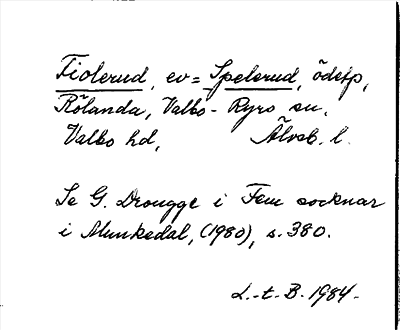 Fiolerud, ev = Spelerud, ödetp,
Rölanda, Valbo-Ryrs sn,
Valbo hd, Älvsb. l.
Se G. Drougge i Fem socknar
i Munkedal, (1980), s. 380.
L.-t. B. 1984.